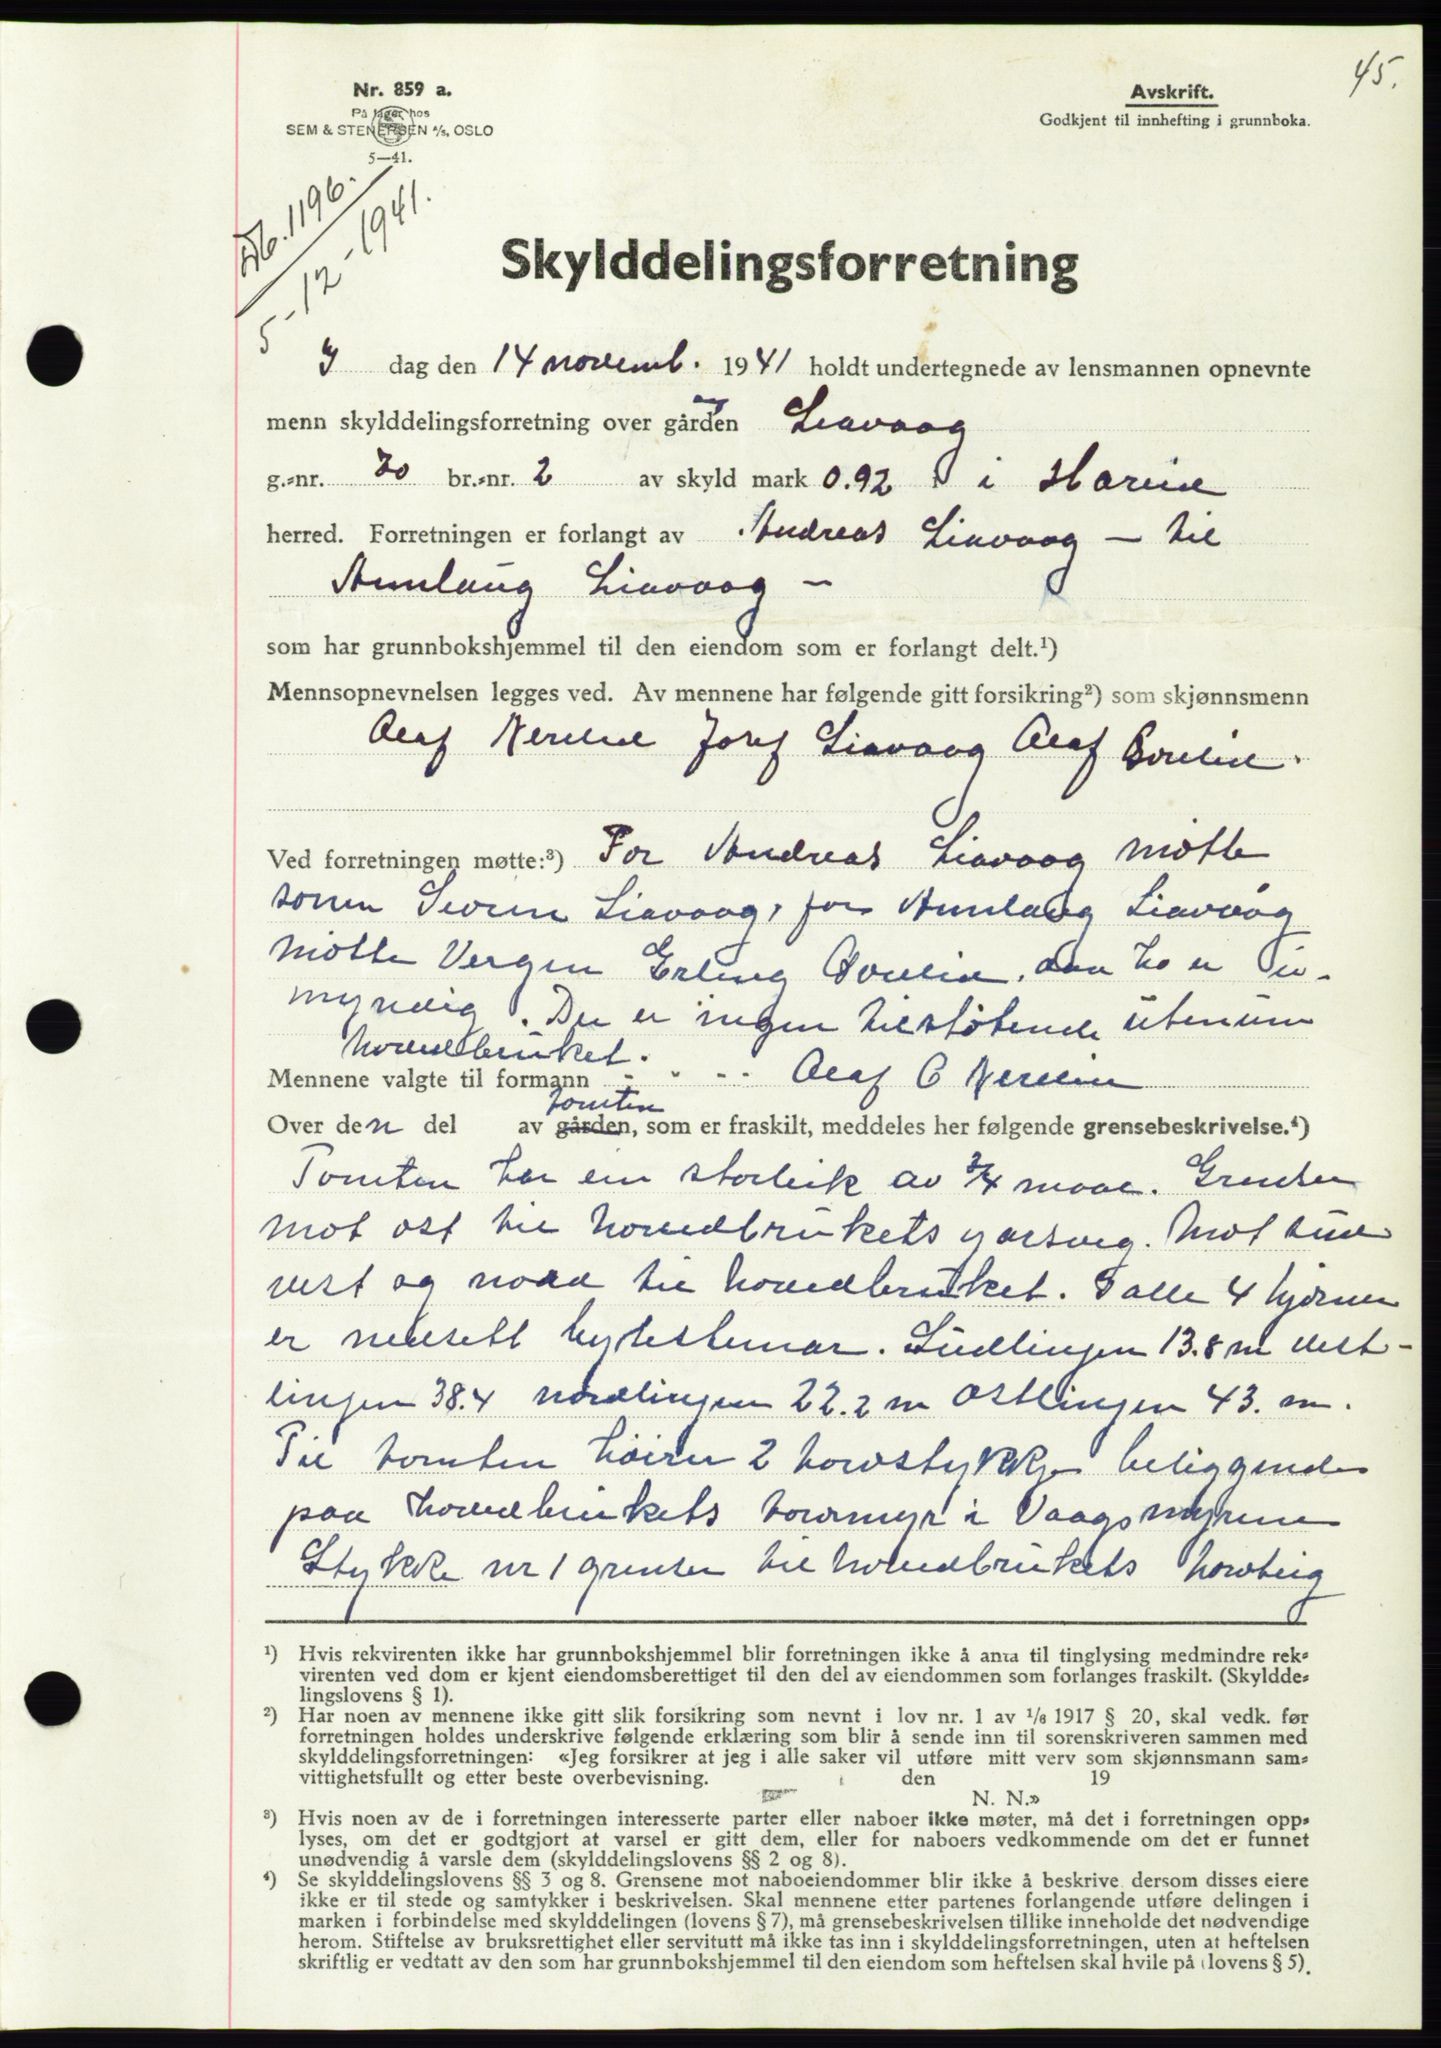 45.
Nr. 859 a.
På lager hos
SEM & STENERSEN A/S, OSLO
5—41.
Avskrift.
Godkjent til innhefting i grunnboka.
Db. 1196.
5-12-1941.
Skylddelingsforretning
I dag den 14 novemb. 1941 holdt undertegnede av lensmannen opnevnte
menn skylddelingsforretning over gården Liavaag
g.=nr. 70 br.=nr. 2 av skyld mark 0.92 i Hareid
herred. Forretningen er forlangt av Andreas Liavaag — til
Annlaug Liavaag —
som har grunnbokshjemmel til den eiendom som er forlangt delt.¹)
Mennsopnevnelsen legges ved. Av mennene har følgende gitt forsikring²) som skjønnsmenn
Olaf Nereid Josef Liavaag Olaf Ovreid.
Ved forretningen møtte:³) For Andreas Liavaag møtte
sonen Severin Liavaag, for Annlaug Liavaag
møtte Vergen Erling Ovreid, daa ho er u-
myndig. Der er ingen tilstøtende utenum
hovudbruket.
Mennene valgte til formann - " - - Olaf O Nereid
tomten
Over den del av gården, som er fraskilt, meddeles her følgende grensebeskrivelse.⁴)
Tomten har ein storleik av 3/4 maal. Grenser
mot ost til hovudbrukets garsveg. Mot sud
vest og nord til hovudbruket. I alle 4 hjørner
er nedsett bytesteinar. Sudlingen 13.8 m vest-
lingen 38.4 nordlingen 22.2 m ostlingen 43. m.
Til tomten høirer 2 torvstykkje beliggende
paa hovudbrukets torvmyr i Vaagsmyrene
Stykke nr 1 grenser til hovudbrukets torvteig
¹) Hvis rekvirenten ikke har grunnbokshjemmel blir forretningen ikke å anta til tinglysing medmindre rek=
virenten ved dom er kjent eiendomsberettiget til den del av eiendommen som forlanges fraskilt. (Skyldde=
lingslovens § 1).
²) Har noen av mennene ikke gitt slik forsikring som nevnt i lov nr. 1 av 1/6 1917 § 20, skal vedk. før
forretningen holdes underskrive følgende erklæring som blir å sende inn til sorenskriveren sammen med
skylddelingsforretningen: «Jeg forsikrer at jeg i alle saker vil utføre mitt verv som skjønnsmann sam=
vittighetsfullt og etter beste overbevisning. den 19
N. N.»
³) Hvis noen av de i forretningen interesserte parter eller naboer ikke møter, må det i forretningen opp=
lyses, om det er godtgjort at varsel er gitt dem, eller for naboers vedkommende om det er funnet
unødvendig å varsle dem (skylddelingslovens §§ 2 og 8).
⁴) Se skylddelingslovens §§ 3 og 8. Grensene mot naboeiendommer blir ikke å beskrive dersom disses eiere
ikke er til stede og samtykker i beskrivelsen. Skal mennene etter partenes forlangende utføre delingen i
marken i forbindelse med skylddelingen (lovens § 7), må grensebeskrivelsen tillike inneholde det nødvendige
herom. Stiftelse av bruksrettighet eller servitutt må ikke tas inn i skylddelingsforretningen, uten at heftelsen
skriftlig er vedtatt av den som har grunnbokshjemmel til den eiendom som heftelsen skal hvile på (lovens § 5).